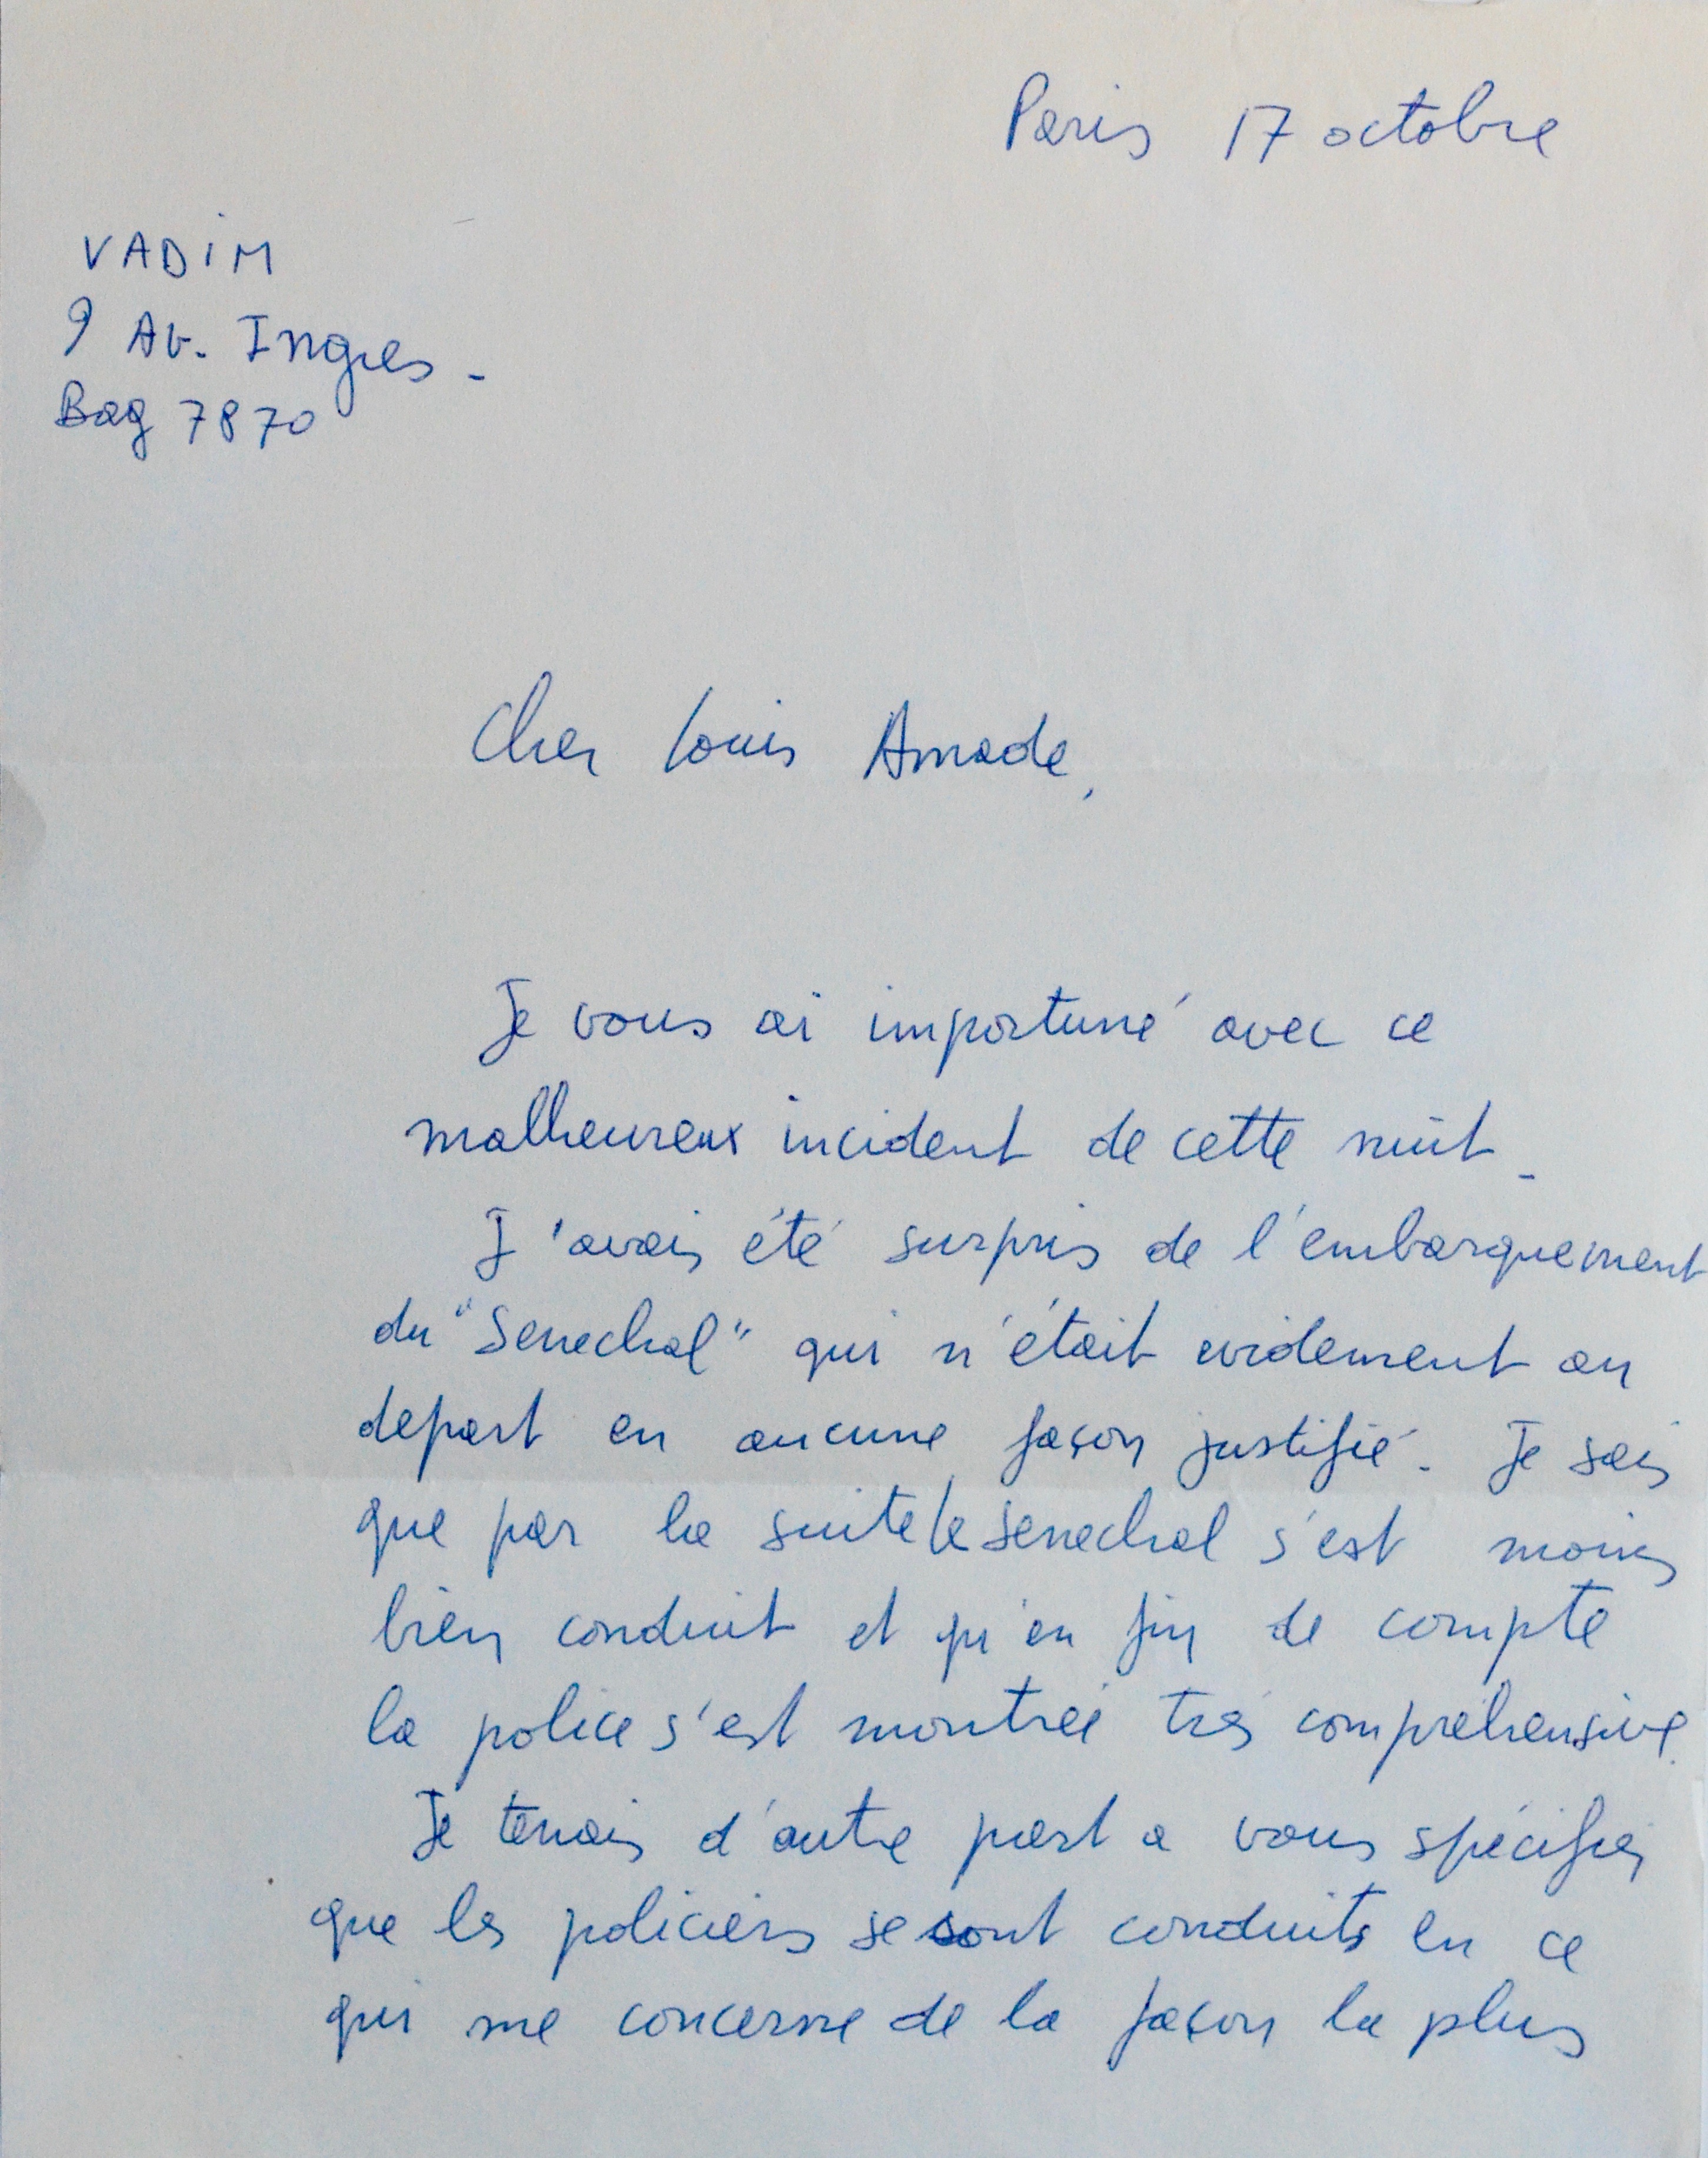 Paris 17 octobre
VADiM
9 Av. Ingres -
Bag 7870
Cher Louis Amade,
Je vous ai importuné avec ce
malheureux incident de cette nuit -
J'avais été surpris de l'embarquement
du "Senechal" qui n'était evidement au
depart en aucune façon justifié - Je sais
que par la suite le senechal s'est moins
bien conduit et qu'en fin de compte
la police s'est montrée très comprehensive.
Je tenais d'autre part a vous spécifier
que les policiers se sont conduits en ce
qui me concerne de la façon la plus